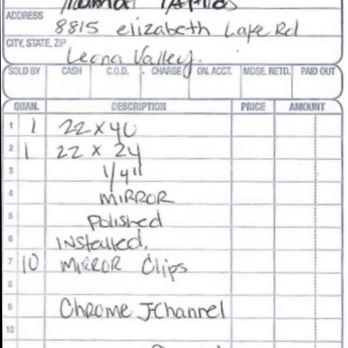 ADDRESS 8815 elizabeth Lake Rd
CITY, STATE, ZIP Leona Valley.
SOLD BY CASH C.O.D. CHARGE ON. ACCT. MDSE. RETD. PAID OUT
QUAN. DESCRIPTION PRICE AMOUNT
1 1 22 x 40
2 1 22 x 24
3 1/4"
4 MIRROR
5 Polished
6 Installed.
7 10 MIRROR Clips
8
9 Chrome J-Channel
10